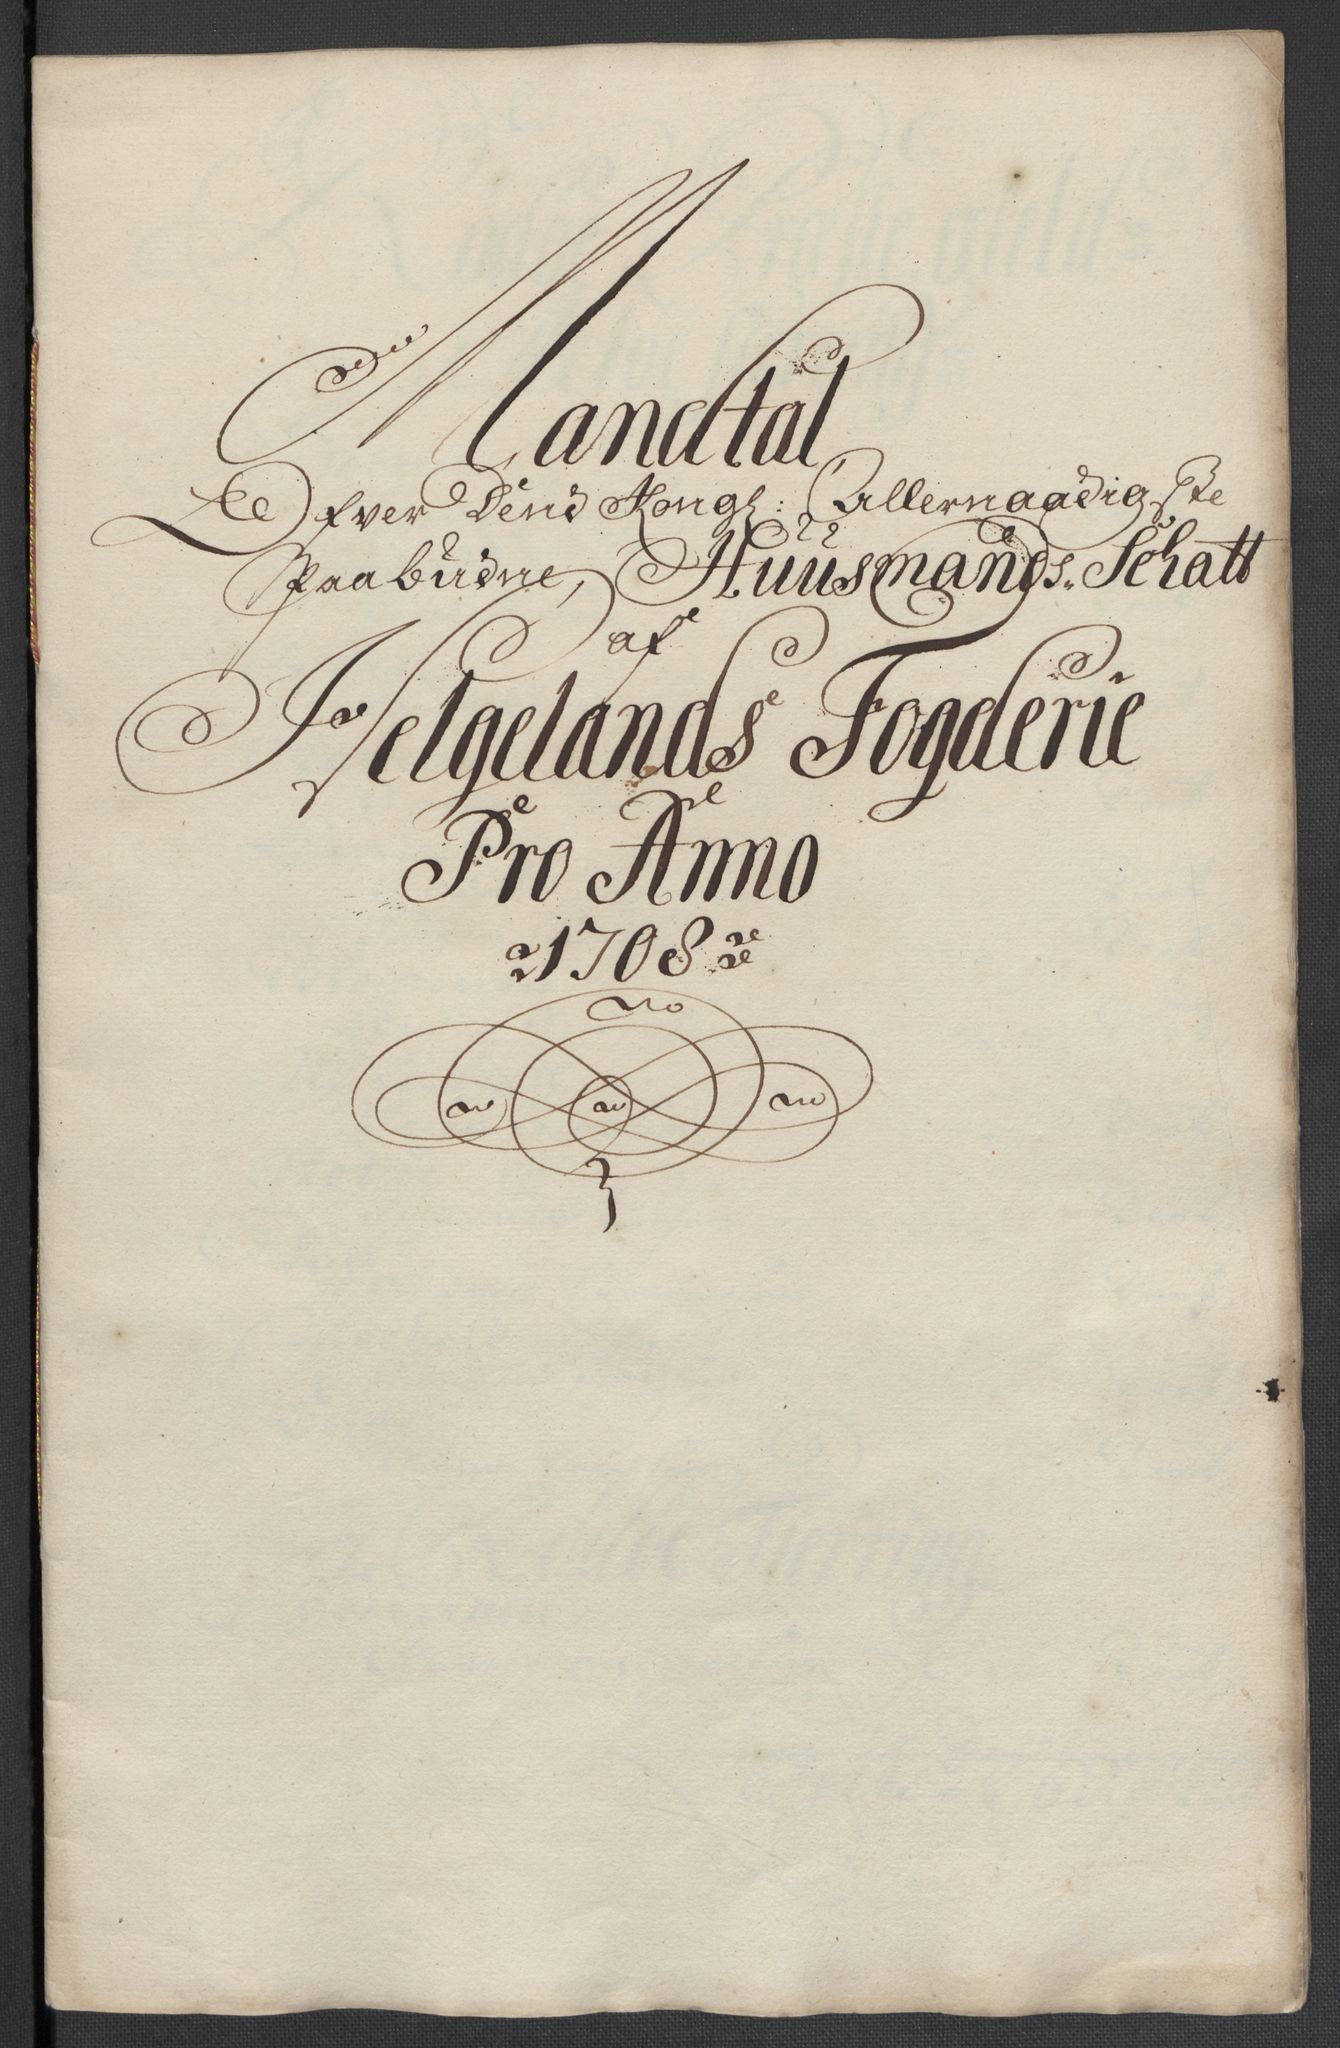 Mandtal
Ofver Dend Kongl: Allernaadigste
Paabudne, Huusmands Schatt
af
Helgelands Fogderie
Pro Anno
1708